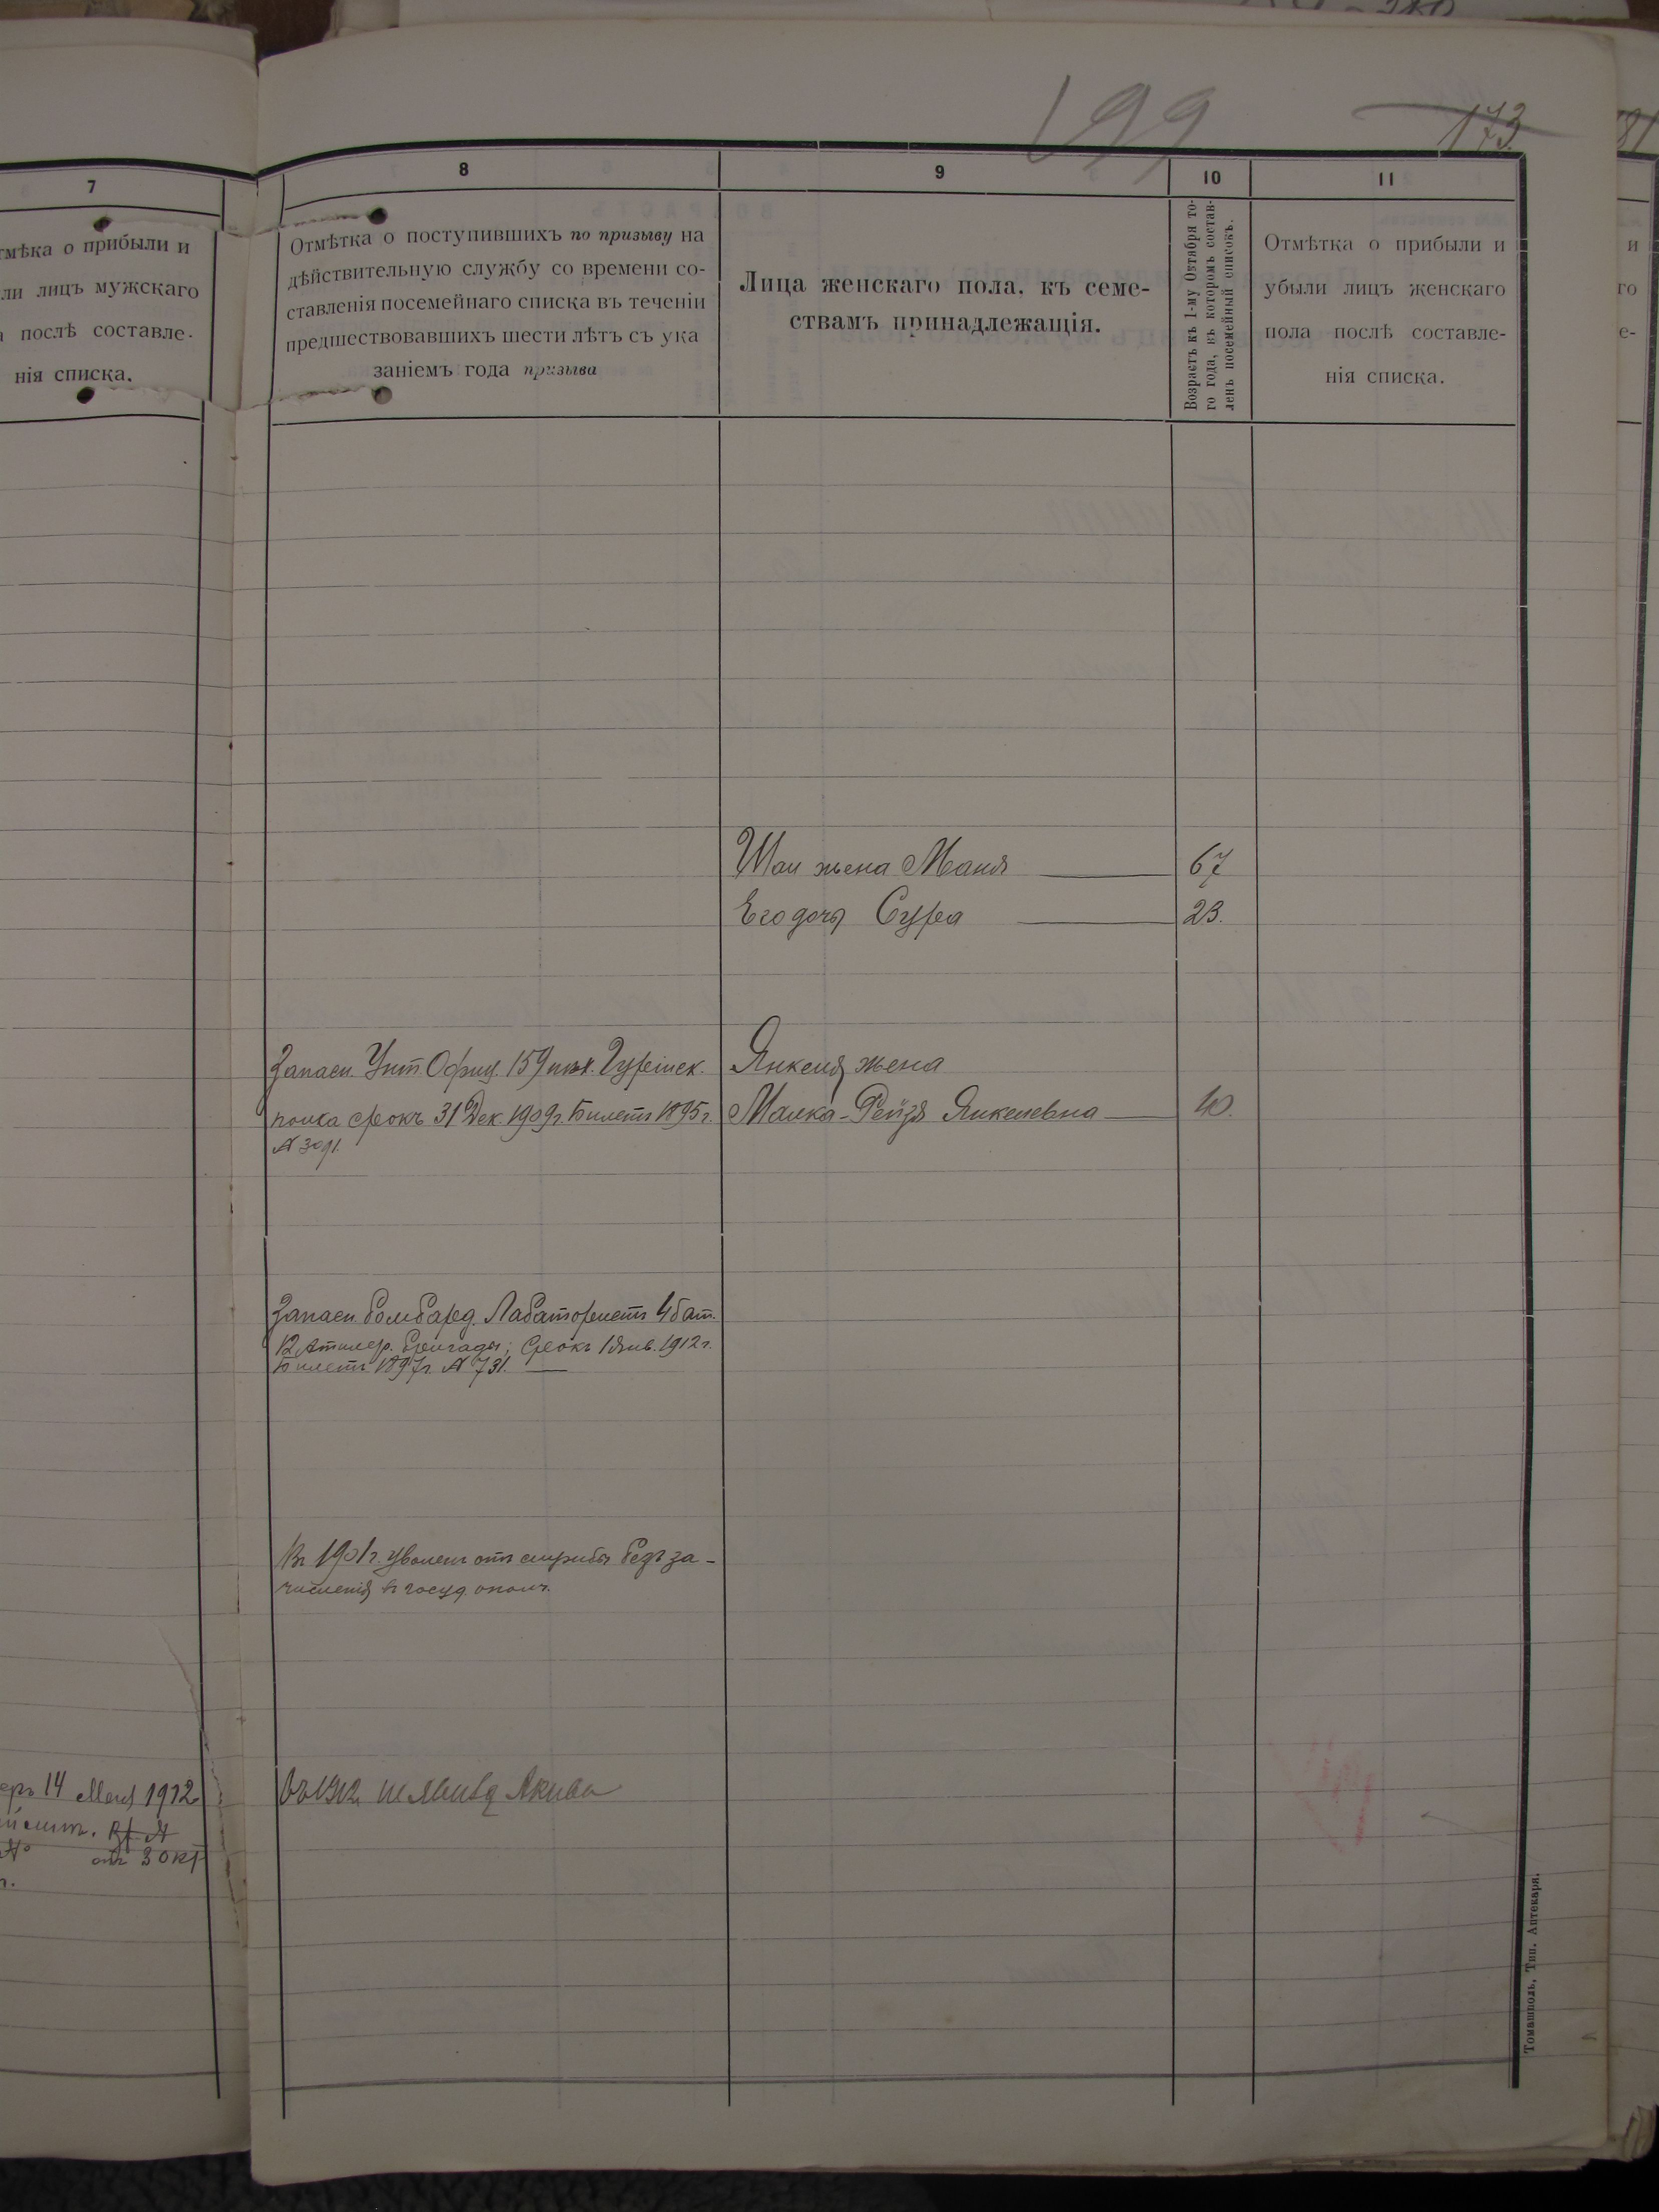 199
173
7
тмѣка о прибыли и
ли лицъ мужскаго
послѣ составле-
нія списка.
8
Отмѣтка о поступившихъ по призыву на
дѣйствительную службу со времени со-
ставленія посемейнаго списка въ теченіи
предшествовавшихъ шести лѣтъ съ ука
заніемъ года призыва
9
Лица женскаго пола, къ семе-
ствамъ принадлежащія.
10
Возрастъ къ 1-му Октября то-
го года, въ которомъ состав-
ленъ посемейный списокъ.
11
Отмѣтка о прибыли и
убыли лицъ женскаго
пола послѣ составле-
нія списка.
и
го
е-
Шаи жена Маня 67
Его дочь Сура 23.
Запасн. Унт. Офиц. 159 пѣх. Гурійск.
полка срокъ 31 Дек. 1909г. Билетъ 1895г.
№ 3091.
Янкеля жена
Малка-Рейзя Янкелевна 40.
Запасн. бомбард. Лабатористъ 4 бат.
12 Артилер. бригады; Срокъ 1 Янв. 1912г.
Билетъ 1897г. № 731.
Въ 1901г. уволенъ отъ службы безъ за-
численія въ госуд. ополч.
14 Мая 1912
№ отъ 30 кт
Томашполь, Тип. Аптекаря.